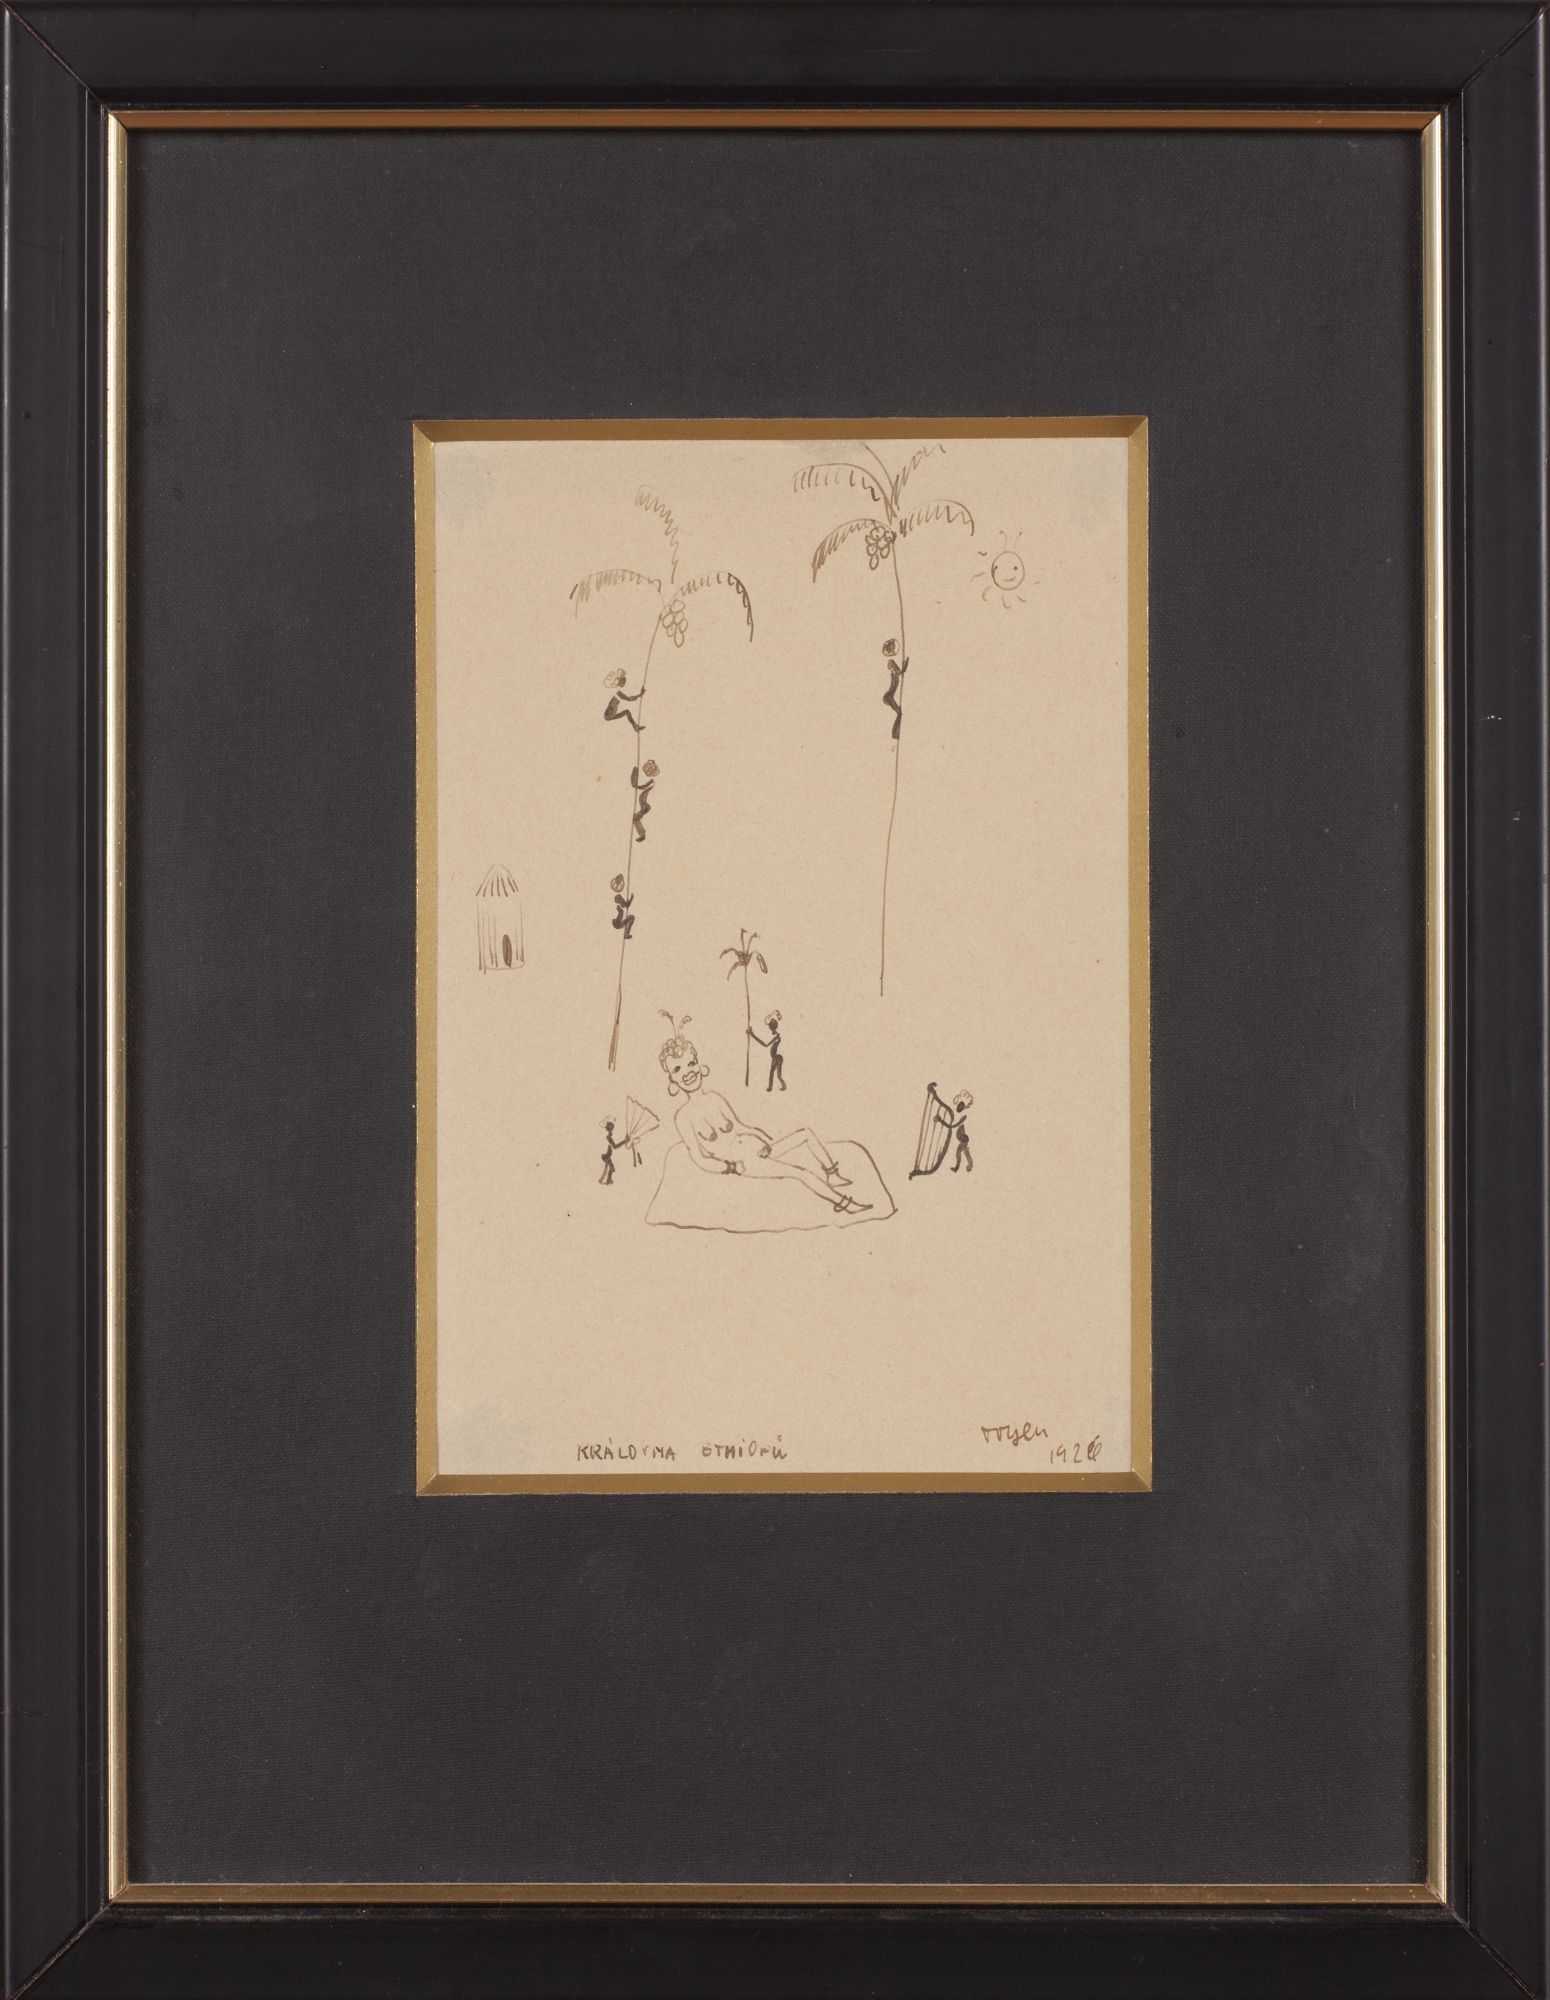 KRÁLOVNA ETHIOPŮ
Toyen
1926